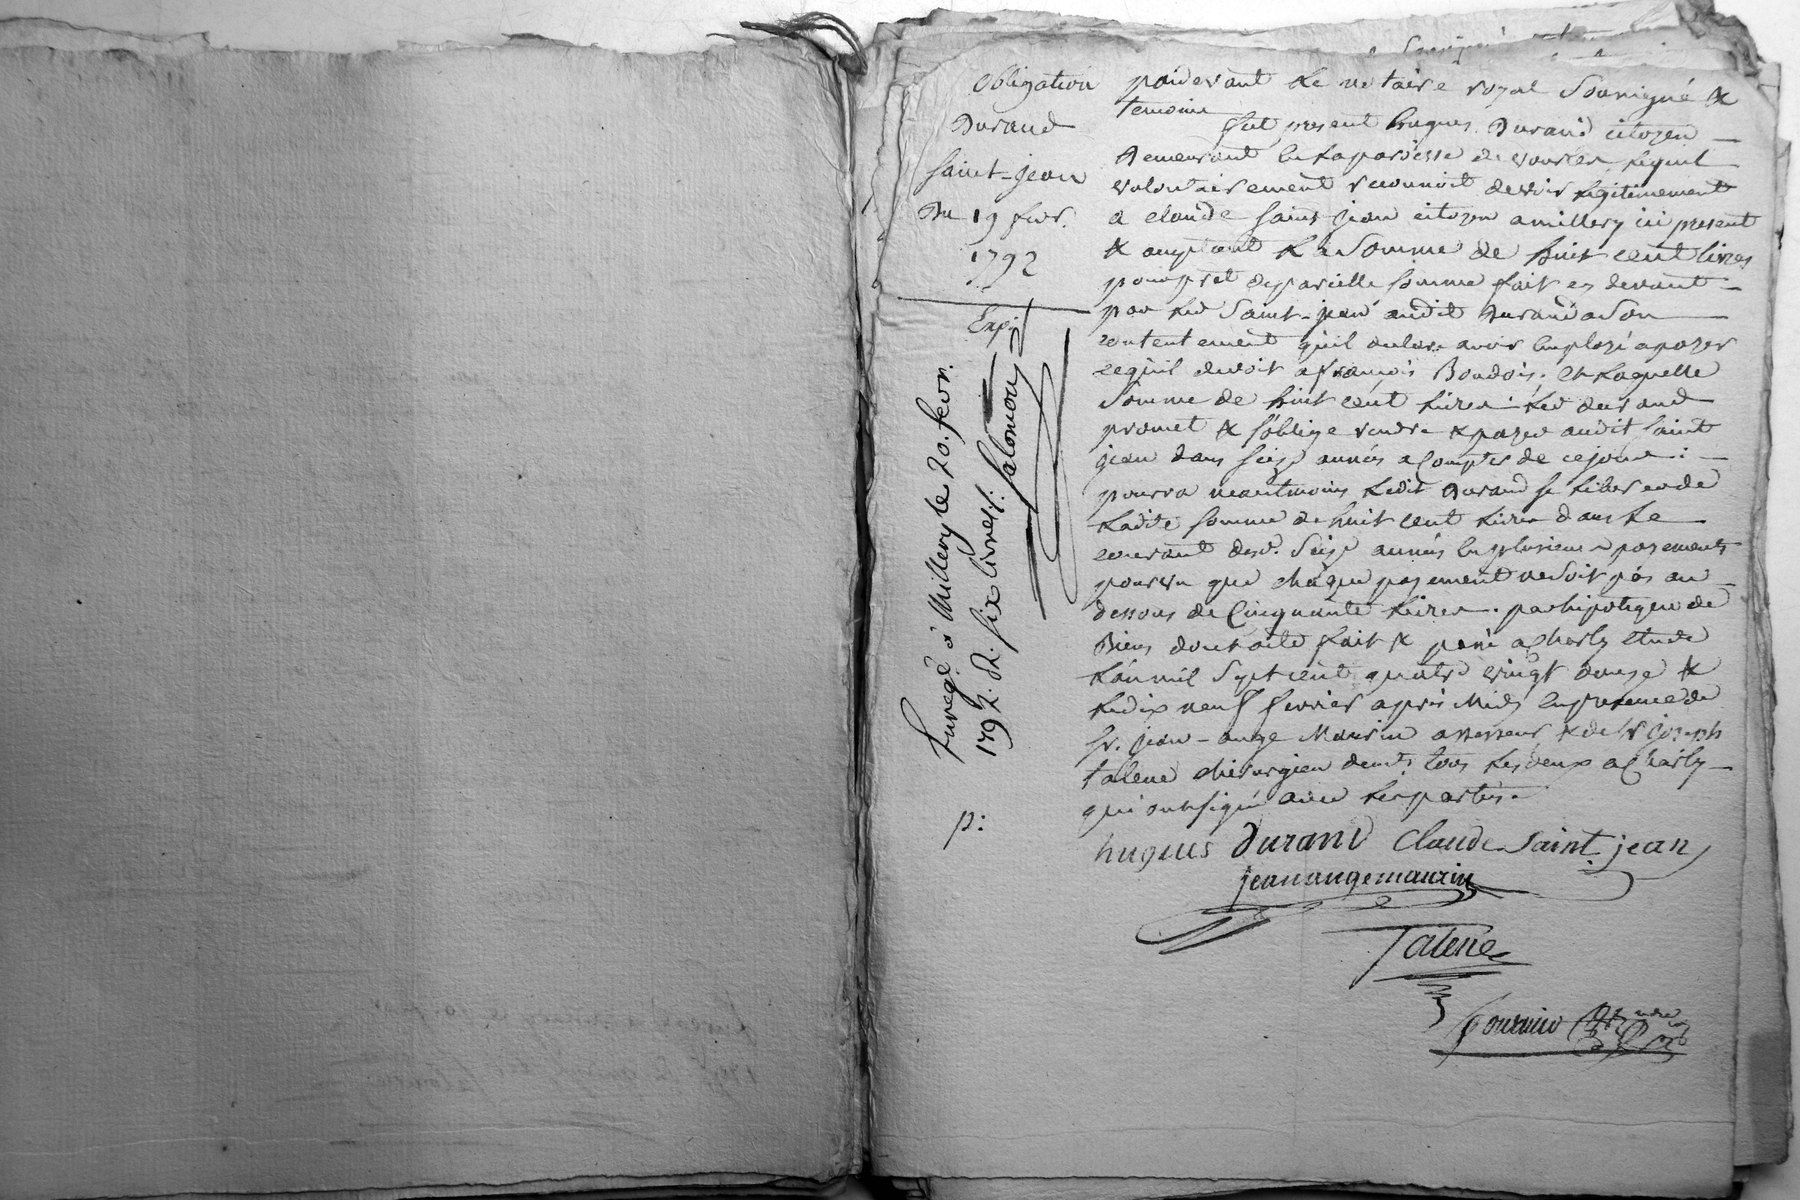 obligation
Durand
Saint-jean
Du 19 fevr.
1792
Exp.
Enregé. à Millery le 20. fevr.
1792. R. six livres/. Salomon
p:
pardevant le notaire royal soussigné &
temoins
fut present hugues Durand citoyen
demeurant en la paroisse de vourles lequel
volontairement reconnoit devoir legitimement
a claude saint jean citoyen a millery ici present
& acceptant la somme de huit cent livres
pour pret de pareille somme fait cy devant
par led Saint-jean audit Durand a son
contentement quil declare avoir employé a payer
ce quil devoit a françois Boudois. et laquelle
Somme de huit cent livres. led durand
promet & s'oblige rendre & payer audit saint
jean dans seize années a compter de ce jour:
pourra neantmoins ledit Durand se liberer de
ladite somme de huit cent livres dans le
courant desd. Seize années en plusieurs payements
pourvu que chaque payement ne soit pas au
dessous de Cinquante livres. par hipoteque de
Biens dont acte fait & passé a Charly etude
l'an mil sept cent quatre vingt douze &
le dix neuf fevrier après Midy en presence de
sr. jean-ange Maurin assesseur & de sr joseph
talene chirurgien demts. tous les deux a Charly
qui ont signé avec les parties.
hugues Durand Claude Saint jean
jean ange maurin
Talene